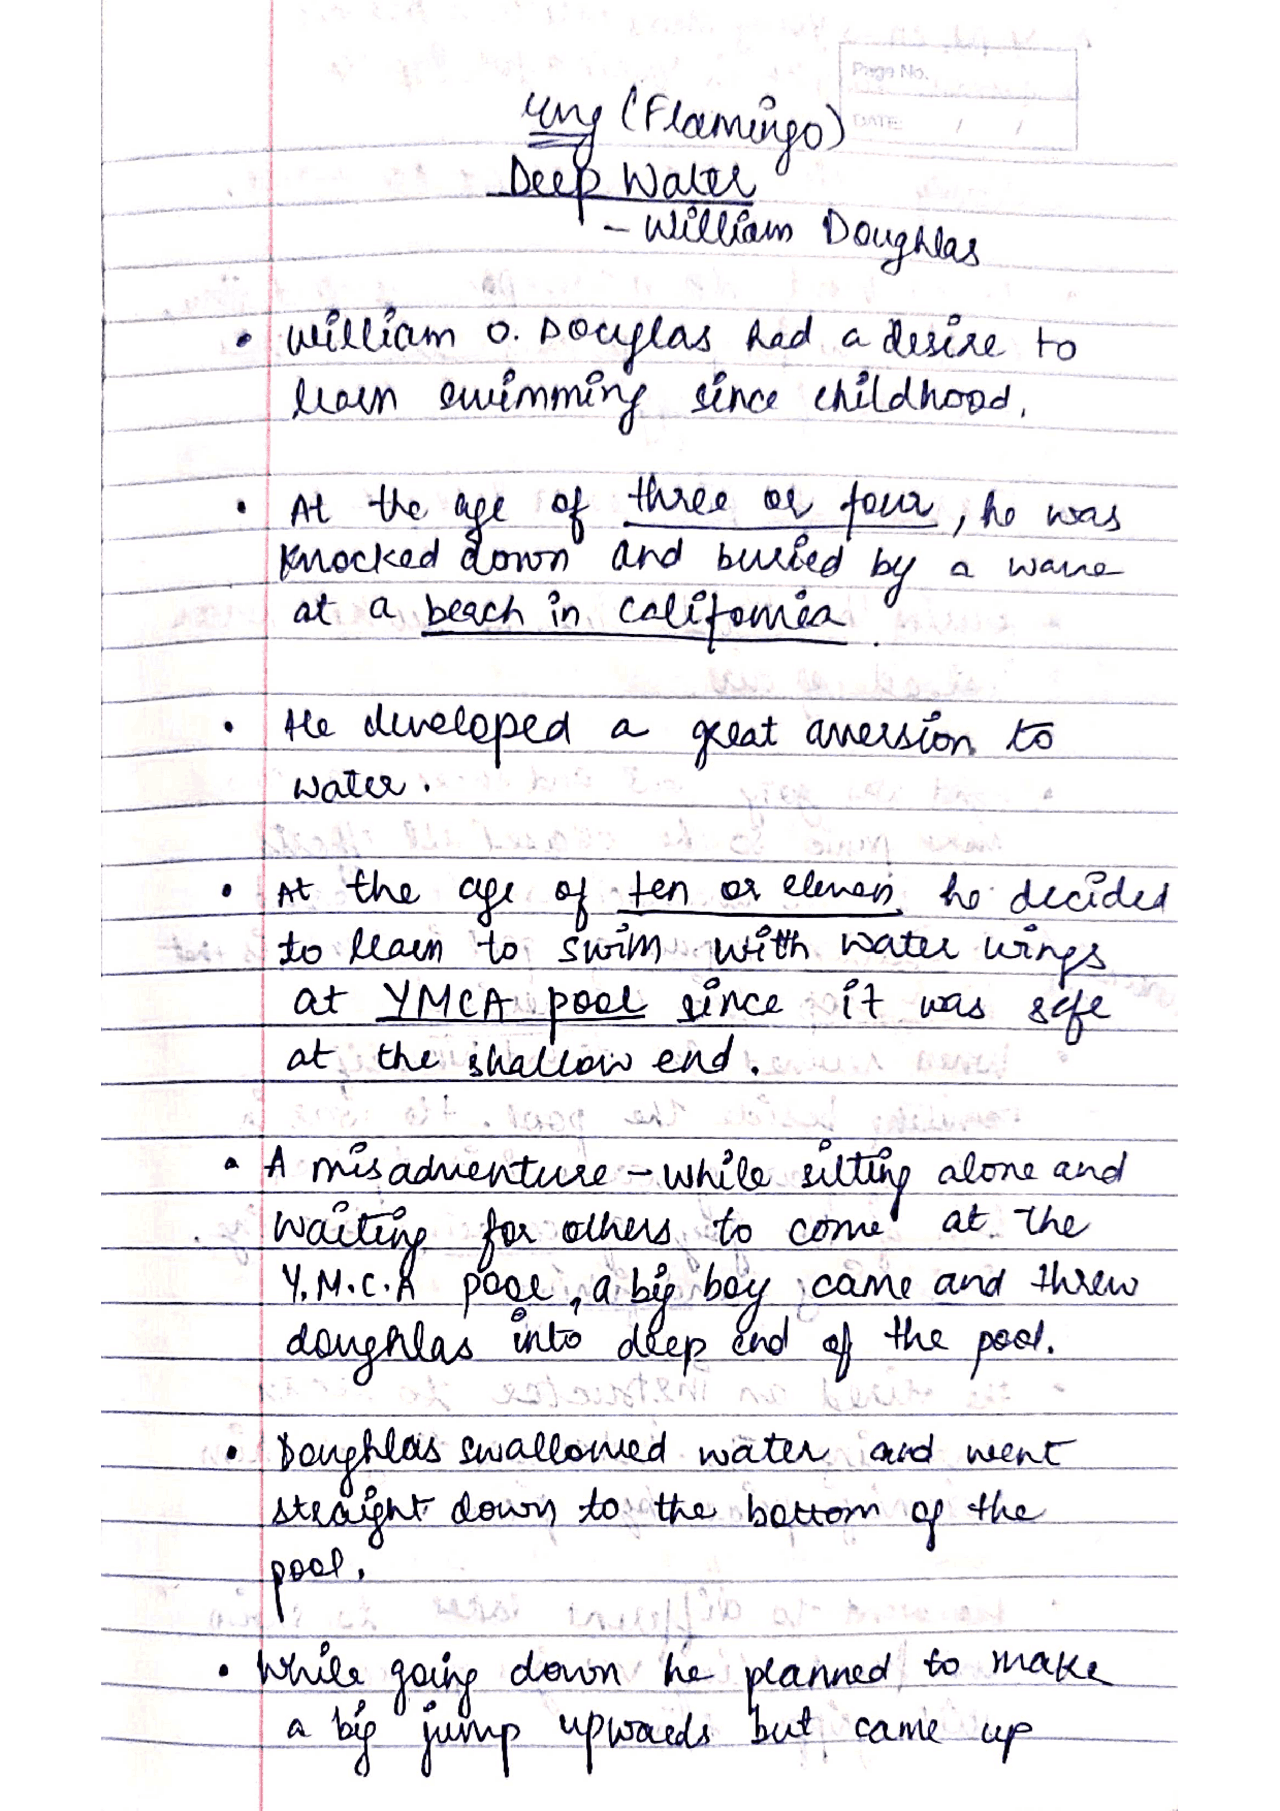 Page No.
DATE / /
Eng (Flamingo)
Deep Water
- William Doughlas
• William O. Douglas had a desire to
learn swimming since childhood.
• At the age of three or four, he was
knocked down and buried by a wave
at a beach in California.
• He developed a great aversion to
water.
• At the age of ten or eleven he decided
to learn to swim with water wings
at YMCA pool since it was safe
at the shallow end.
• A misadventure - while sitting alone and
waiting for others to come at the
Y.M.C.A pool, a big boy came and threw
doughlas into deep end of the pool.
• Doughlas swallowed water and went
straight down to the bottom of the
pool.
• While going down he planned to make
a big jump upwards but came up